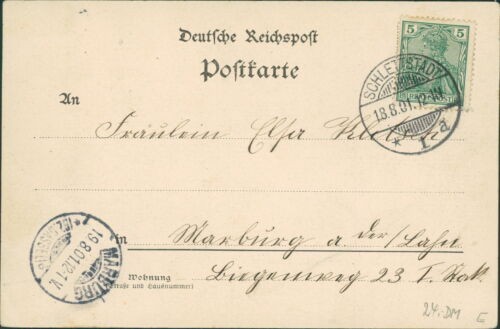 Deutsche Reichspost
Postkarte
5 5
SCHLETTSTADT
18.8.01.
* a
An
Fräulein Elsa
in Marburg a. der/Lahn
Wohnung
(Straße und Hausnummer)
Biegenweg 23 I. Stok.
MARBURG
19 8.01.12-1V.
*(BZ.CASSEL)
24.-DM